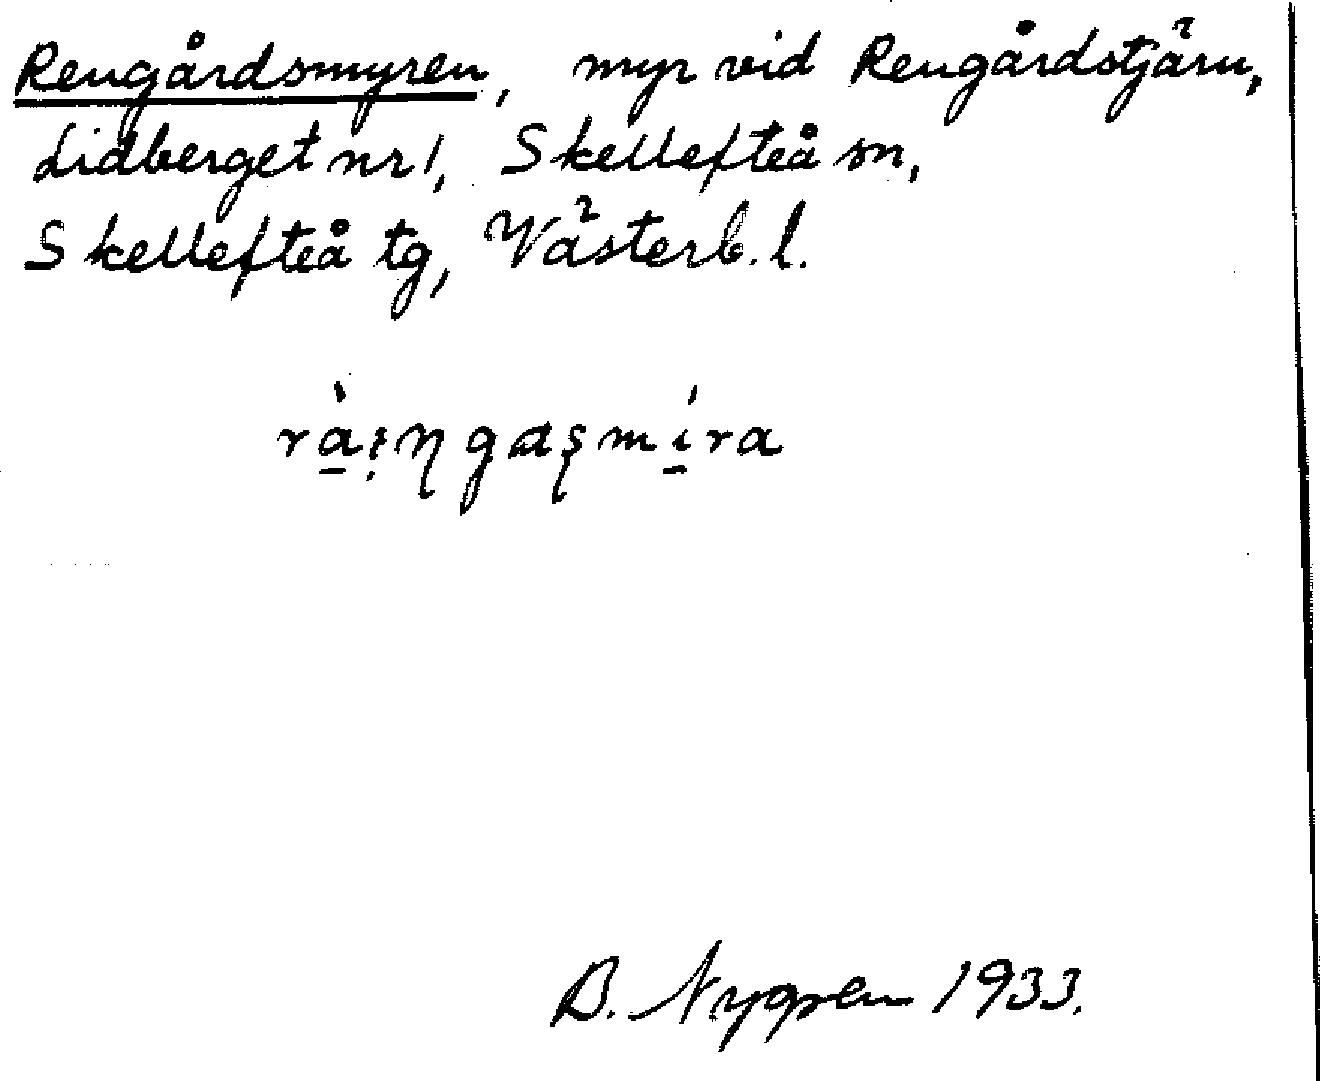 Rengårdsmyren, myr vid Rengårdstjärn,
Lidberget nr 1, Skellefteå sn,
Skellefteå tg, Västerb. l.
B. Nygren 1933.